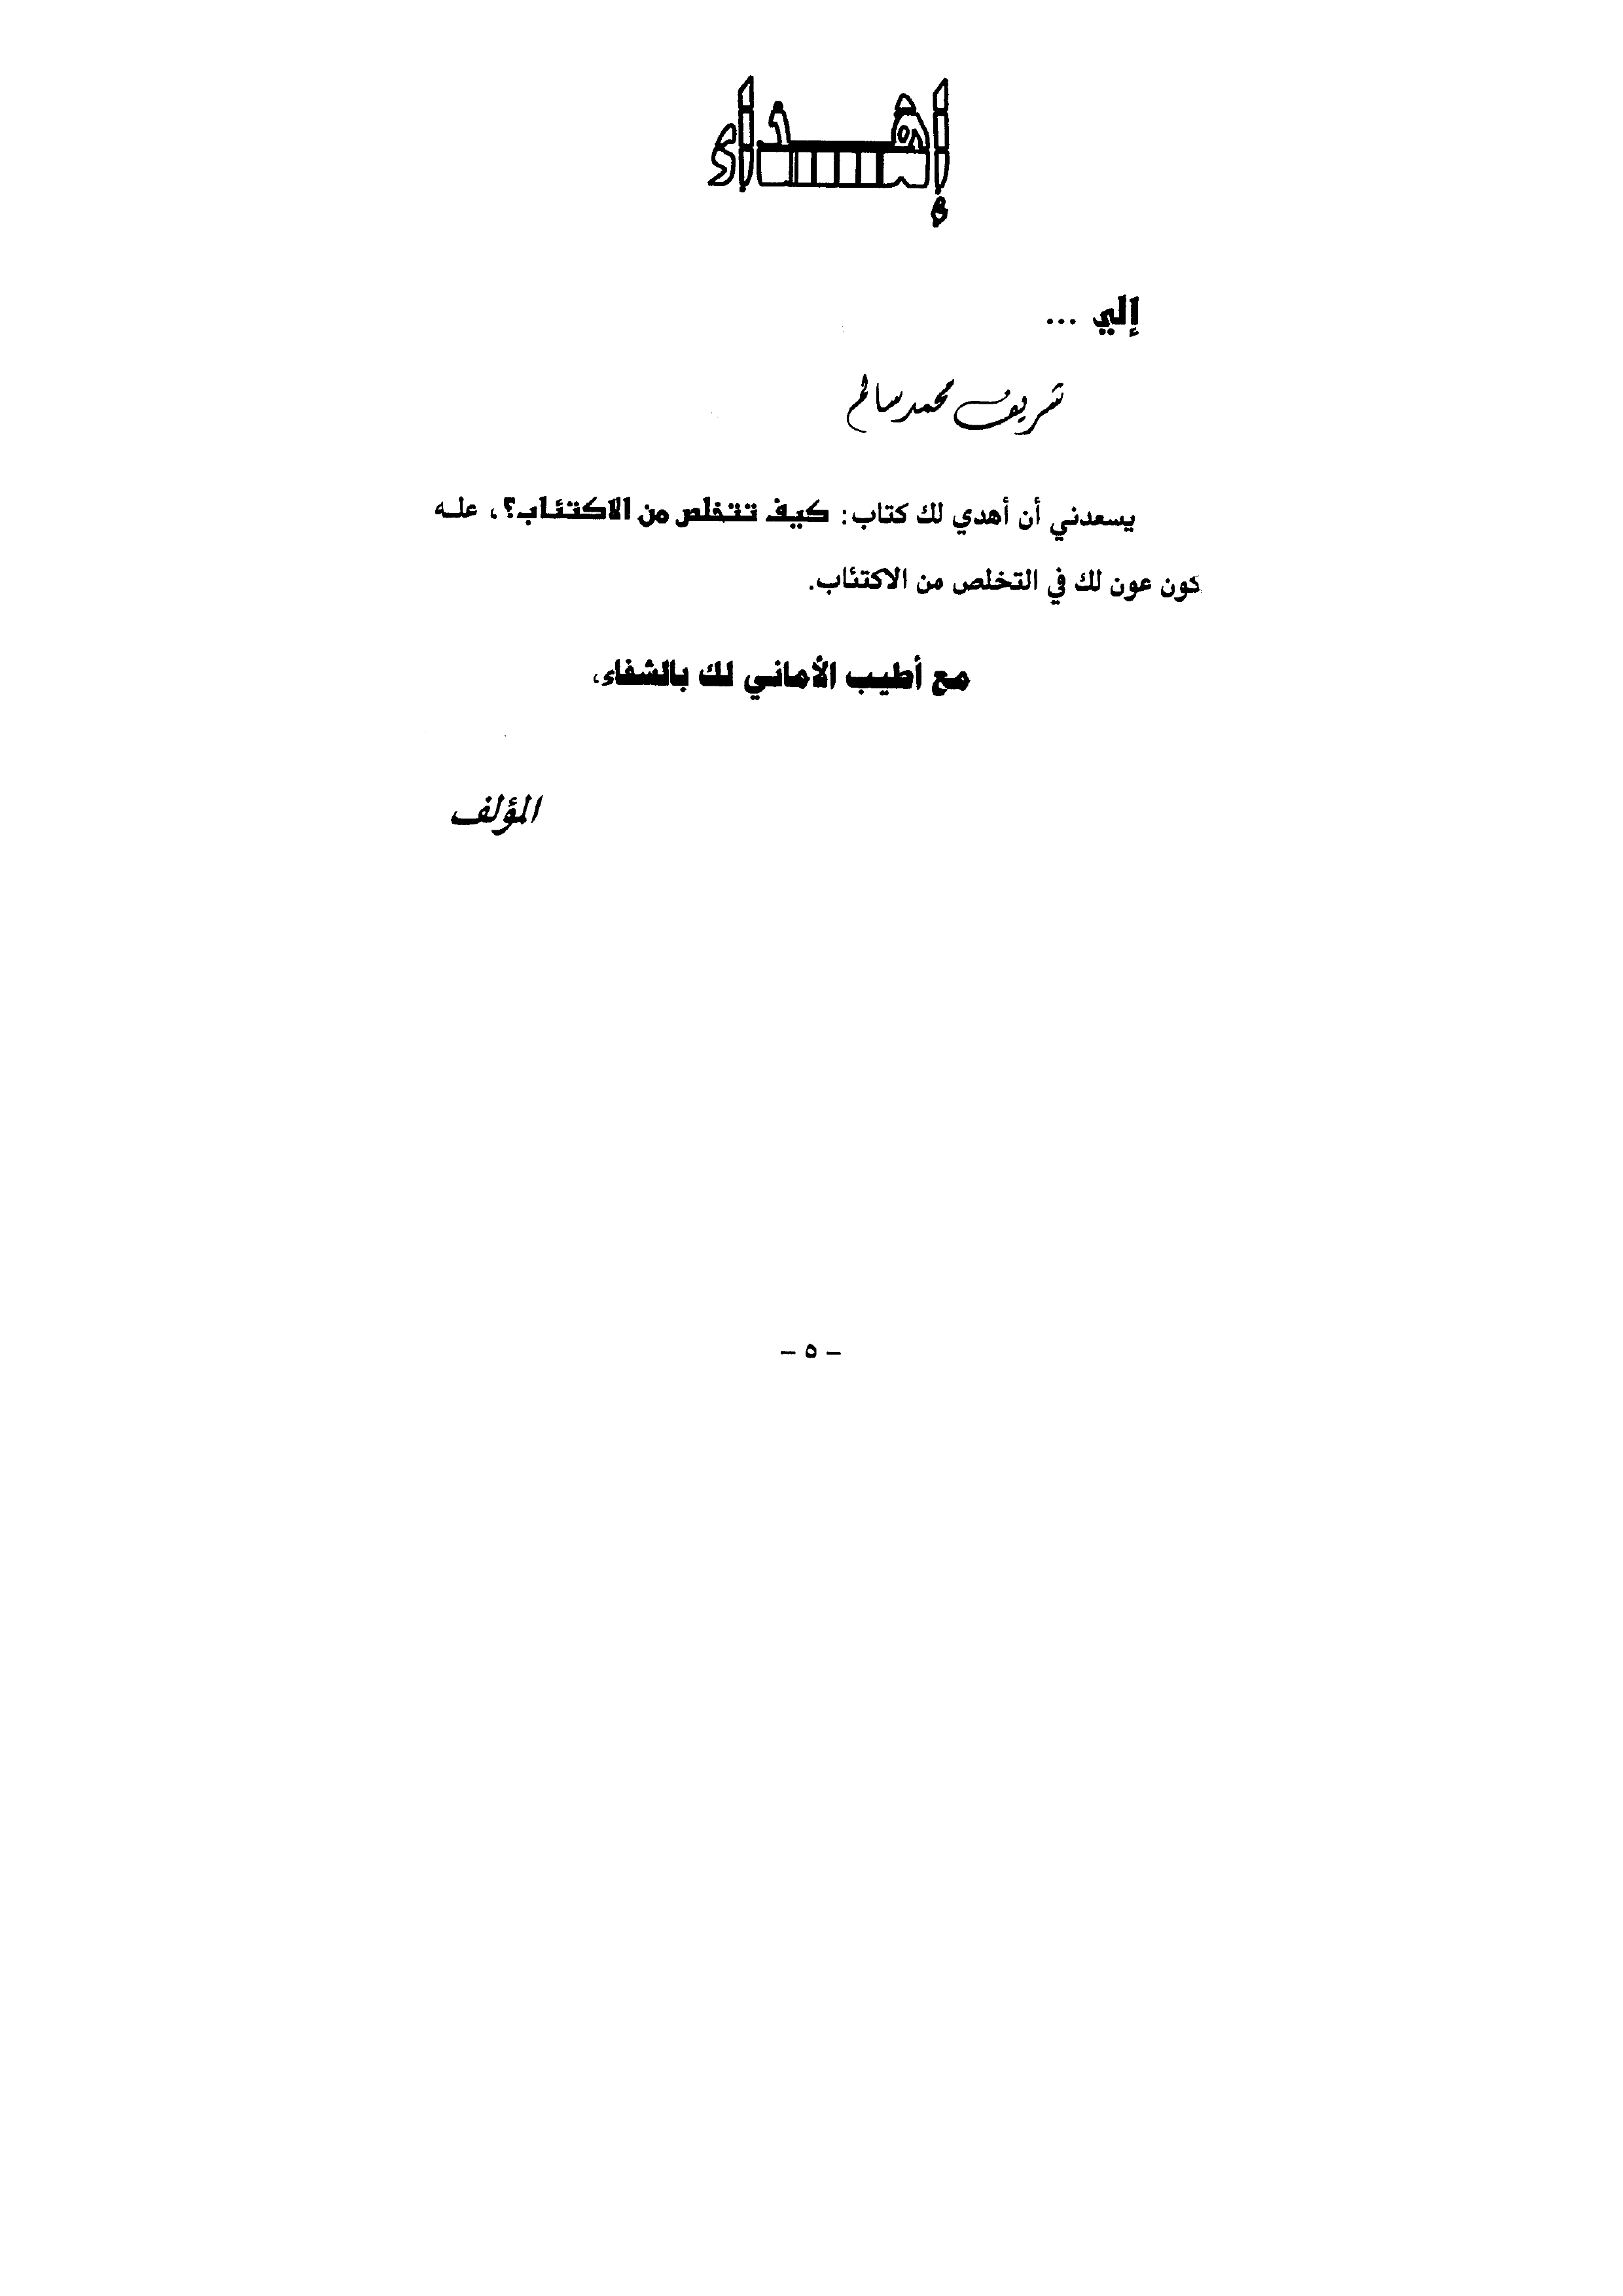 إهداء
إلي ...
شريف محمد سالم
يسعدني أن أهدي لك كتاب: كيف تتخلص من الاكتئاب؟، علـه
كون عون لك في التخلص من الاكتئاب.
مع أطيب الأماني لك بالشفاء،
المؤلف
– ٥ –